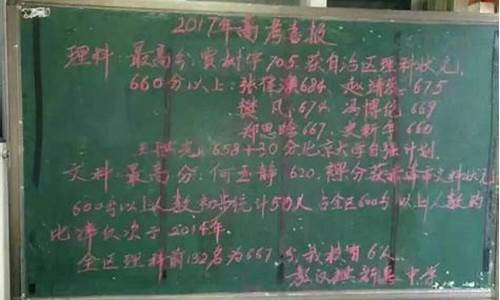 2017年高考喜报
理科:最高分:贾树华705.获自治区理科状元.
660分以上:张保 684. 赵 675
樊凡.674. 冯博伦 669
郑思 667. 史新年 660
王 658+30分北京大学自强计划.
文科:最高分:何玉静 620.裸分获 市文科状元
600分以上人数初步统计50人占全区600分以上人数的
比率仅次于2014年.
全区理科前132名为667分,我校有6人